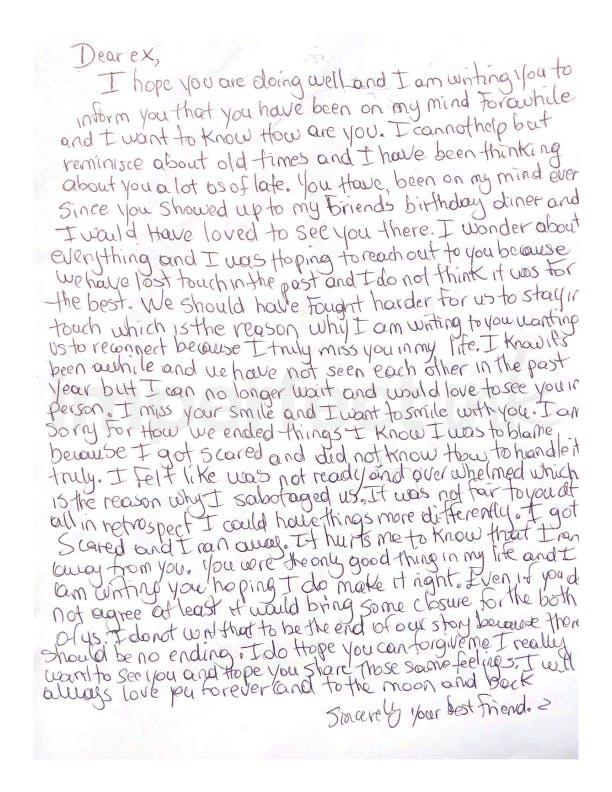 Dear ex,
I hope you are doing well and I am writing you to
inform you that you have been on my mind for awhile
and I want to know How are you. I cannot help but
reminisce about old times and I have been thinking
about you a lot as of late. You Have, been on my mind ever
Since you showed up to my friends birthday diner and
I would Have loved to see you there. I wonder about
everything and I was Hoping to reach out to you because
we have lost touch in the past and I do not think it was for
the best. We should have fought harder for us to stay in
touch which is the reason why I am writing to you wanting
us to reconnect because I truly miss you in my life. I know it's
been awhile and we have not seen each other in the past
year but I can no longer wait and would love to see you in
person. I miss your smile and I want to smile with you. I am
Sorry for How we ended things I know I was to blame
because I got scared and did not know How to handle it
truly. I felt like was not ready and over whelmed which
is the reason why I sabotaged us. It was not fair to you at
all in retrospect I could have things more differently. I got
Scared and I ran away. It hurts me to know that I ran
away from you. You were the only good thing in my life and I
am writing you hoping I do make it right. Even if you do
not agree at least it would bring some closure for the both
of us. I do not want that to be the end of our story because there
should be no ending. I do Hope you can forgive me I really
want to see you and Hope you share those same feelings. I will
always love you forever and to the moon and back
Sincerely your best friend.